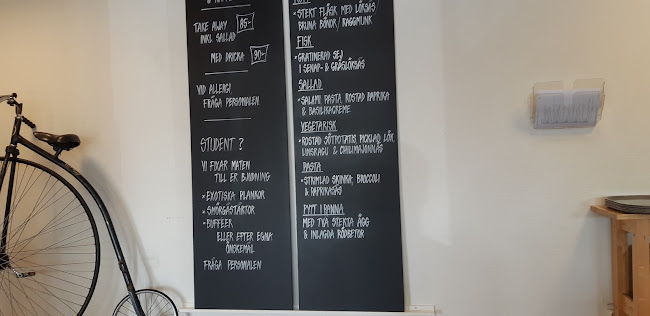 TAKE AWAY 85:-
INKL SALLAD
MED DRICKA 90:-
VID ALLERGI
FRÅGA PERSONALEN
STUDENT?
VI FIXAR MATEN
TILL ER BJUDNING
• EXOTISKA PLANKOR
• SMÖRGÅSTÅRTOR
• BUFFÉER
ELLER EFTER EGNA
ÖNSKEMÅL
FRÅGA PERSONALEN
• STEKT FLÄSK MED LÖKSÅS/
BRUNA BÖNOR/RAGGMUNK
FISK
• GRATINERAD SEJ
I SENAP- & GRÄSLÖKSÅS
SALLAD
• SALAMI PASTA ROSTAD PAPRIKA
& BASILIKACREME
VEGETARISK
• ROSTAD SÖTPOTATIS, PICKLAD LÖK
LINSRAGU & CHILIMAJONNÄS
PASTA
• STRIMLAD SKINKA, BROCCOLI
& PAPRIKASÅS
PYTT I PANNA
MED TVÅ STEKTA ÄGG
& INLAGDA RÖDBETOR